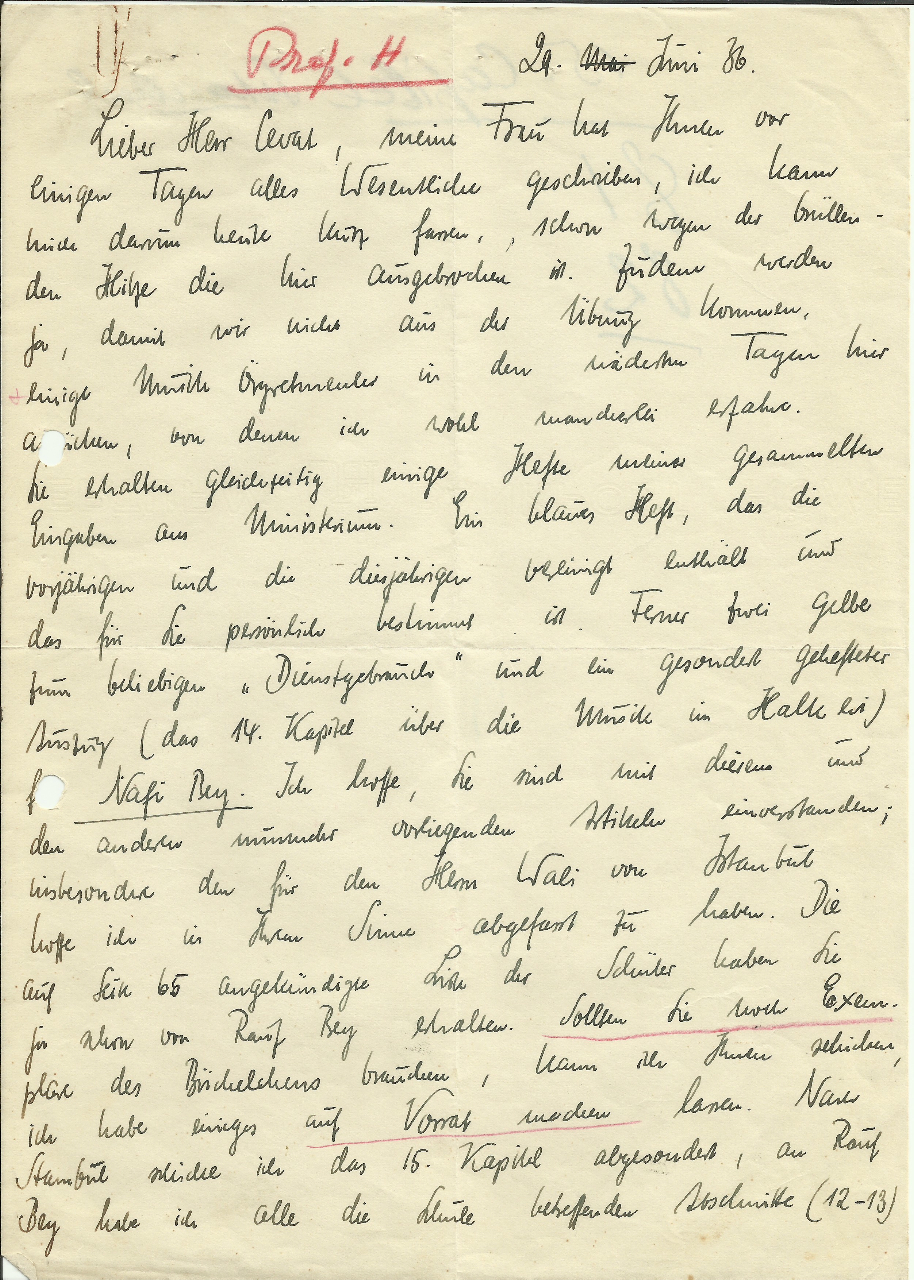 Prof. H
29. Mai Juni 36.
Lieber Herr Cevat, meine Frau hat Ihnen vor
einigen Tagen alles Wesentliche geschrieben, ich kann
mich darum heute kurz fassen, schon wegen der brüllen-
den Hitze die hier ausgebrochen ist. Zudem werden
ja, damit wir nicht aus der Übung kommen,
einige Musik in den nächsten Tagen hier
von denen ich wohl mancherlei erfahre.
Sie erhalten gleichzeitig einige Hefte meiner gesammelten
Eingaben ans Ministerium. Ein blaues Heft, das die
vorjährigen und die diesjährigen vereinigt enthält und
das für Sie persönlich bestimmt ist. Ferner zwei gelbe
zum beliebigen „Dienstgebrauch" und ein gesondert gehefteter
Auszug (das 14. Kapitel über die Musik im Halk evi)
f Nafi Bey. Ich hoffe, Sie sind mit diesem und
den anderen nunmehr vorliegenden Artikeln einverstanden;
insbesondre den für den Herrn Wali von Istanbul
hoffe ich in Ihrem Sinne abgefasst zu haben. Die
auf Seite 65 angekündigte Liste der Schüler haben Sie
ja schon von Rauf Bey erhalten. Sollten Sie noch Exem-
plare des Büchelchens brauchen, kann ich Ihnen schicken,
ich habe einiges auf Vorrat machen lassen. Nach
Stambul schicke ich das 15. Kapitel abgesondert, an Rauf
Bey habe ich alle die Schule betreffenden Abschnitte (12-13)